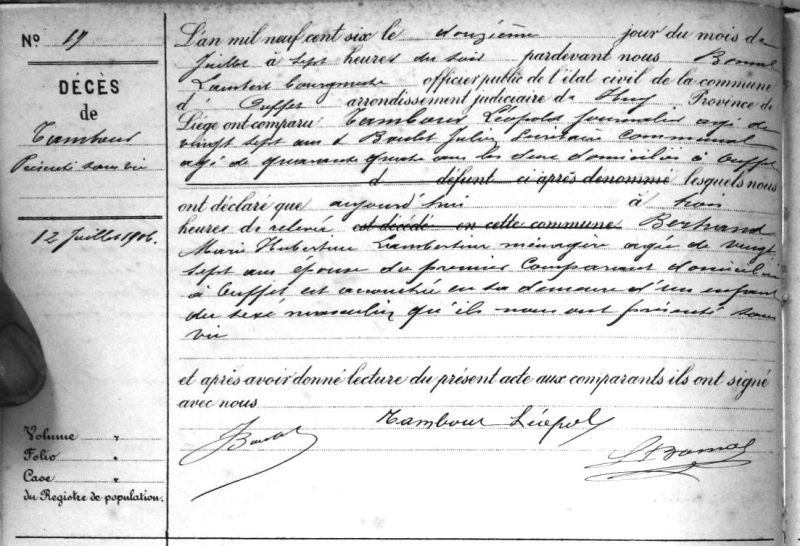 N° 19
DÉCÈS
de
Tambour
Présenté sans vie
12 Juillet 1906.
Volume "
Folio "
Case "
du Registre de population.
L'an mil neuf cent six le douzième jour du mois de
Juillet à sept heures du soir pardevant nous
Lambert bourgmestre officier public de l'état civil de la commune
d'Ouffet arrondissement judiciaire de Huy, Province de
Liége ont comparu Tambour Léopold journalier agé de
vingt sept ans & Boulet Jules Secrétaire Communal
agé de quarante quatre ans les deux domiciliés à Ouffet
d défunt ci après dénommé lesquels nous
ont déclaré que aujourd'hui à trois
heures de relevée est décédé en cette commune Bertrand
Marie Hubertine Lambertine ménagère agée de vingt
sept ans épouse du premier Comparant domiciliée
à Ouffet est accouchée en sa demeure d'un enfant
du sexe masculin qu'ils nous ont présenté sans
vie
et après avoir donné lecture du présent acte aux comparants ils ont signé
avec nous
Tambour Léopol
JBoulet